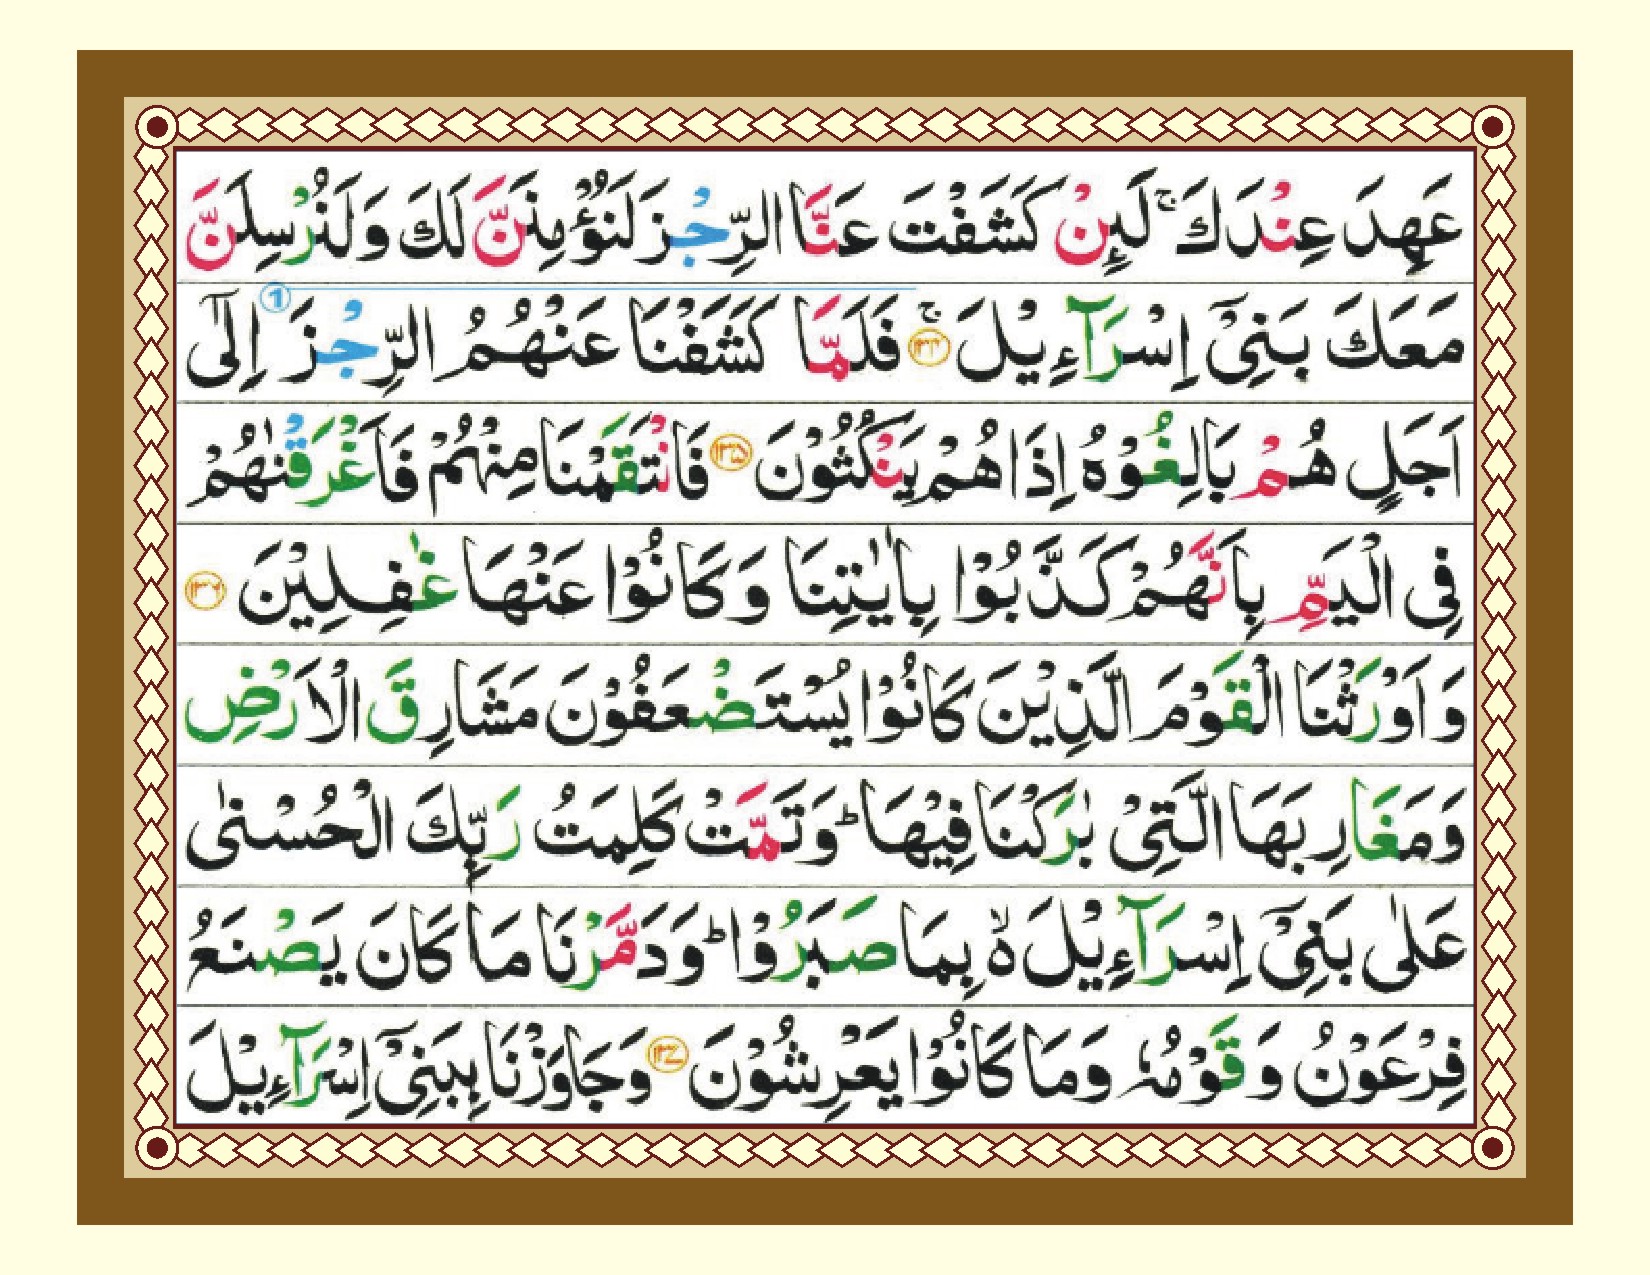 عَهِدَ عِنْدَكَ ۚ لَىِٕنْ كَشَفْتَ عَنَّا الرِّجْزَ لَنُؤْمِنَنَّ لَكَ وَلَنُرْسِلَنَّ
مَعَكَ بَنِیْۤ اِسْرَآءِیْلَ ۚ ﴿۱۳۴﴾ فَلَمَّا كَشَفْنَا عَنْهُمُ الرِّجْزَ ① اِلٰۤی
اَجَلٍ هُمْ بَالِغُوْهُ اِذَا هُمْ یَنْكُثُوْنَ ﴿۱۳۵﴾ فَانْتَقَمْنَا مِنْهُمْ فَاَغْرَقْنٰهُمْ
فِی الْیَمِّ بِاَنَّهُمْ كَذَّبُوْا بِاٰیٰتِنَا وَكَانُوْا عَنْهَا غٰفِلِیْنَ ﴿۱۳۶﴾
وَاَوْرَثْنَا الْقَوْمَ الَّذِیْنَ كَانُوْا یُسْتَضْعَفُوْنَ مَشَارِقَ الْاَرْضِ
وَمَغَارِبَهَا الَّتِیْ بٰرَكْنَا فِیْهَا ؕ وَتَمَّتْ كَلِمَتُ رَبِّكَ الْحُسْنٰی
عَلٰی بَنِیْۤ اِسْرَآءِیْلَ ۙ۬ بِمَا صَبَرُوْا ؕ وَدَمَّرْنَا مَا كَانَ یَصْنَعُ
فِرْعَوْنُ وَقَوْمُهٗ وَمَا كَانُوْا یَعْرِشُوْنَ ﴿۱۳۷﴾ وَجَاوَزْنَا بِبَنِیْۤ اِسْرَآءِیْلَ